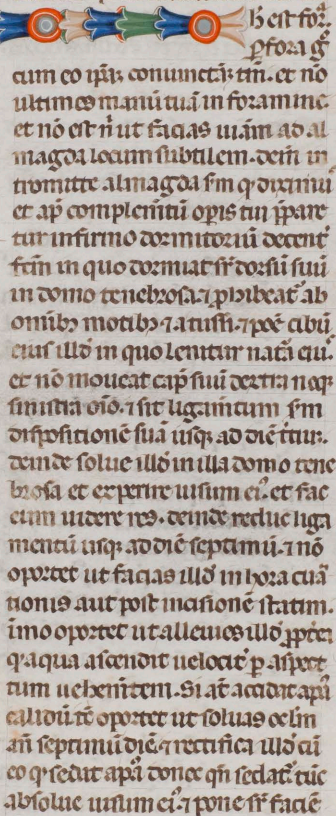 h est forã
ꝑfora g̃
cum eo ip̃aʒ coniunctãʒ tm̃. et nõ
ultimes manũ tuã in foramine
et nõ est n̾ ut facias uiam ad al
magda locum subtilem. dein̾ in
tromitte almagda s̃m q̾ diximꝰ
et ap̾ complem̃tũ opis tui p̃pare
tur infirmo dormitoriũ decent̾
fc̃m in quo dormiat sr̃ dorsũ suũ
in domo tenebrosa. ⁊ ꝓhibeat̾ ab
omĩbꝫ motibꝫ ⁊ a tussi. ⁊ põe cibũ
eius illð in quo lenitur nat̾a eiꝰ.
et nõ moueat cap̾ suũ dextra neqꝫ
sinistra oĩo. ⁊ sit ligam̃tum s̃m
dispositionẽ suã usqꝫ ad diẽ t̃tiũ.
deinde solue illð in illa domo tene
brosa et experire uisum eiꝰ. et fac
eum uidere res. deinde reduc liga
mentũ usqꝫ ad diẽ septimũ. ⁊ nõ
oportet ut facias illð in hora cura
tionis aut post incisionẽ statim.
imo oportet ut alleuies illð ꝓpter
q̾ aqua ascendit uelocit̾ ꝑ aspec
tum uehem̃tem. Si at̃ accidat ap̾a
calidũ tẽ oportet ut soluas oc̾lm
an̾ septimũ diẽ. ⁊ rectifica illð cũ
eo q̾ sedat ap̾a donec qñ sedat̾. tũc
absolue uisum eiꝰ ⁊ pone sr̃ faciẽ